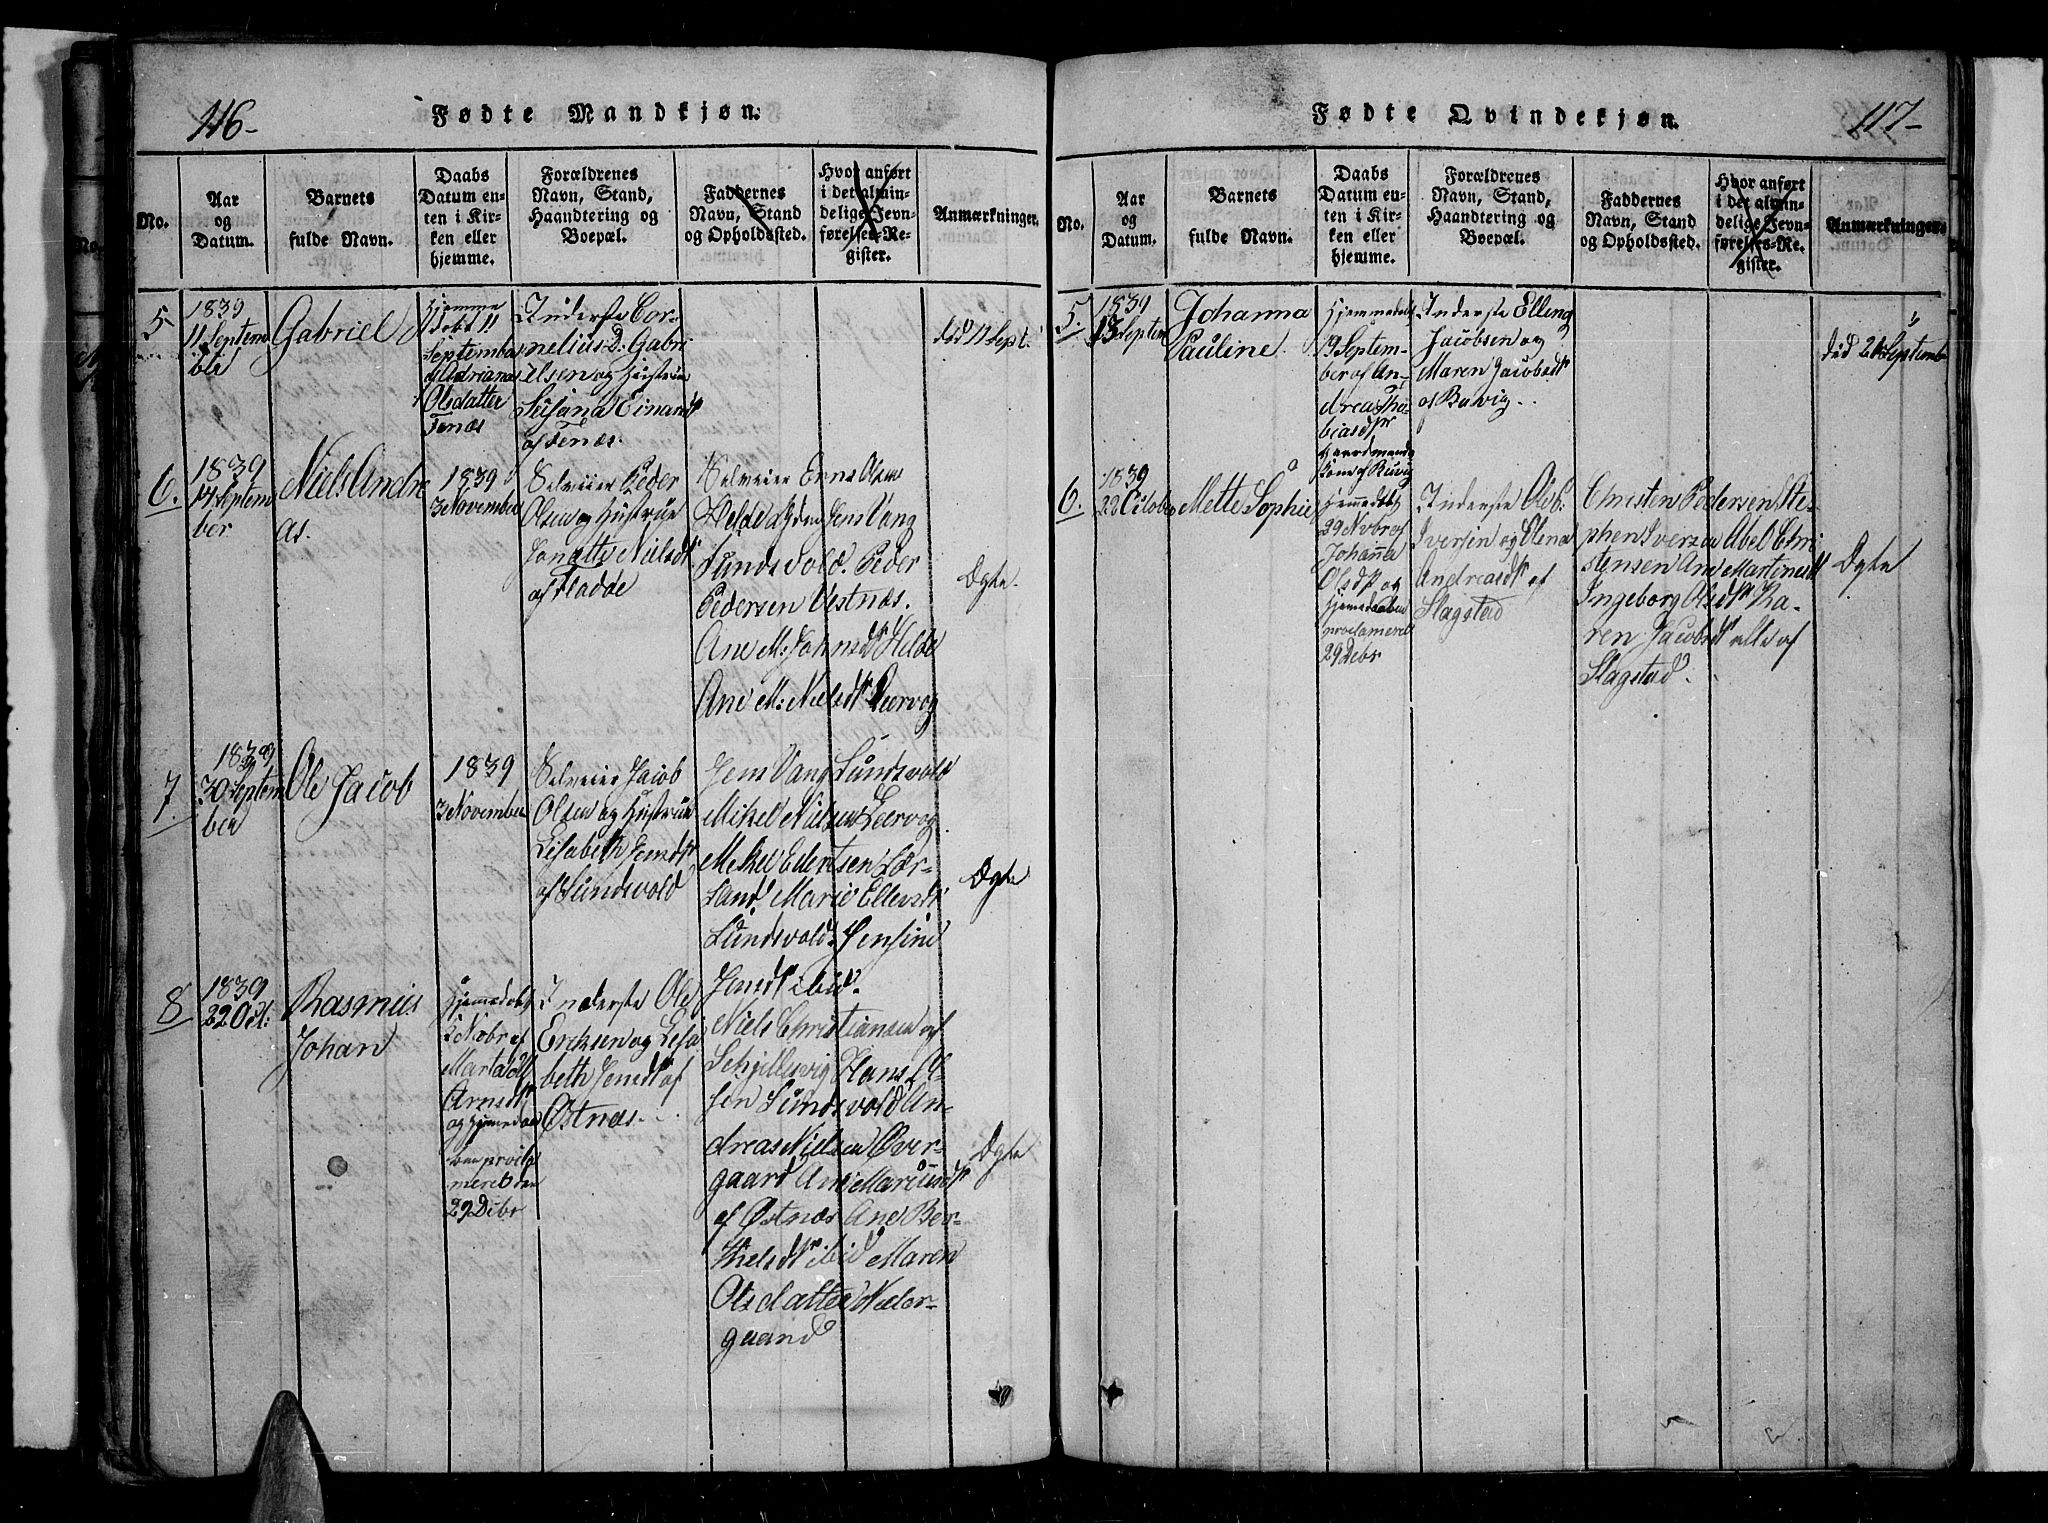 116-
Fødte Mandkjøn.
No.
Aar
og
Datum.
Barnets
fulde Navn.
Daabs
Datum en-
ten i Kir-
ken eller
hjemme.
Forældrenes
Navn, Stand,
Haandtering og
Boepæl.
Faddernes
Navn, Stand
og Opholdssted.
Hvor anført
i det almin-
delige Jevn-
førelses-Re-
gister.
Anmærkninger.
5
1839
11 Septem
ber
Gabriel
Hjemme
døbt 11
September
af Adriana
Olsdatter
Tenæs
Inderste Cor-
nelius D: Gabri
elsen og Hustrue
Susana Einards
af Tenæs.
død 11 Sept.
6.
1839
14 Septem
ber
Niels Andre
as.
1839
3 November
Selveier Peder
Olsen og Hustrue
Jonette Nielsdt
af Fladde
Selveier Enns Olsen
Helde Jens Vang
Sundsvold. Peder
Pedersen Vestnæs.
Ane M: Johnsdt Helde
Ane M: Nielsdt Leervog
Ægte.
7.
1839
30 Septem
ber
Ole Jacob
1839
3 November
Selveier Jacob
Olsen og Hustrue
Lisabeth Jensdt
af Sundsvold
Jens Vang Sundsvold
Mikel Nielsen Leervog
Mikel Edertsen Lær-
Marie Ellensdt
Sundsvold. Jensine
Jensdt ibid.
Ægte
8
1839
22 Oct:
Rasmus
Johan
Hjemedøbt
2 Nobr af
Marta
Arnsdt
og Hjemedaa
ben procla
meret den
29 Debr
Inderste Ole
Ericksen og Lisa
beth Jensdt af
Østnæs.
Niels Christiansen af
Schjellesvig Hans Ol-
sen Sundsvold An-
dreas Nielsen Over-
gaard Ane Mariusdt
af Østnæs Ane Ber-
thelsdt ibid Maren
Olsdatter Neder-
gaard
Ægte
117-
Fødte Qvindekjøn.
No.
Aar
og
Datum.
Barnets
fulde Navn.
Daabs
Datum en-
ten i Kir-
ken eller
hjemme.
Forældrenes
Navn, Stand,
Haandtering og
Boepæl.
Faddernes
Navn, Stand
og Opholdssted.
Hvor anført
i det almin-
delige Jevn-
førelses-Re-
gister.
Anmærkninger.
5.
1839
13 Septem
Johanna
Pauline
Hjemmedøbt
19 Septem-
ber af An-
drea Tho-
biasdtr
Gaardmands
kone af Buvig
Inderste Elling
Jacobsen og
Maren Jacobsdt
af Buvig.
død 21 Septemb
6.
1839
22 Octobe
Mette Sophie
Hjemmedøbt
29 Novbr af
Johanna
Olsdt og
hjemedaaben
proclameret
29 Debr
Inderste Ole
Iversen og Elena
Andreasdt af
Slagstad
Christen Pedersen Ste-
phen Iversen Abel Chri
stensen Ane Martinusdt
Ingeborg Olsdt Ka-
ren Jacobsdt alle af
Slagstad.
Ægte